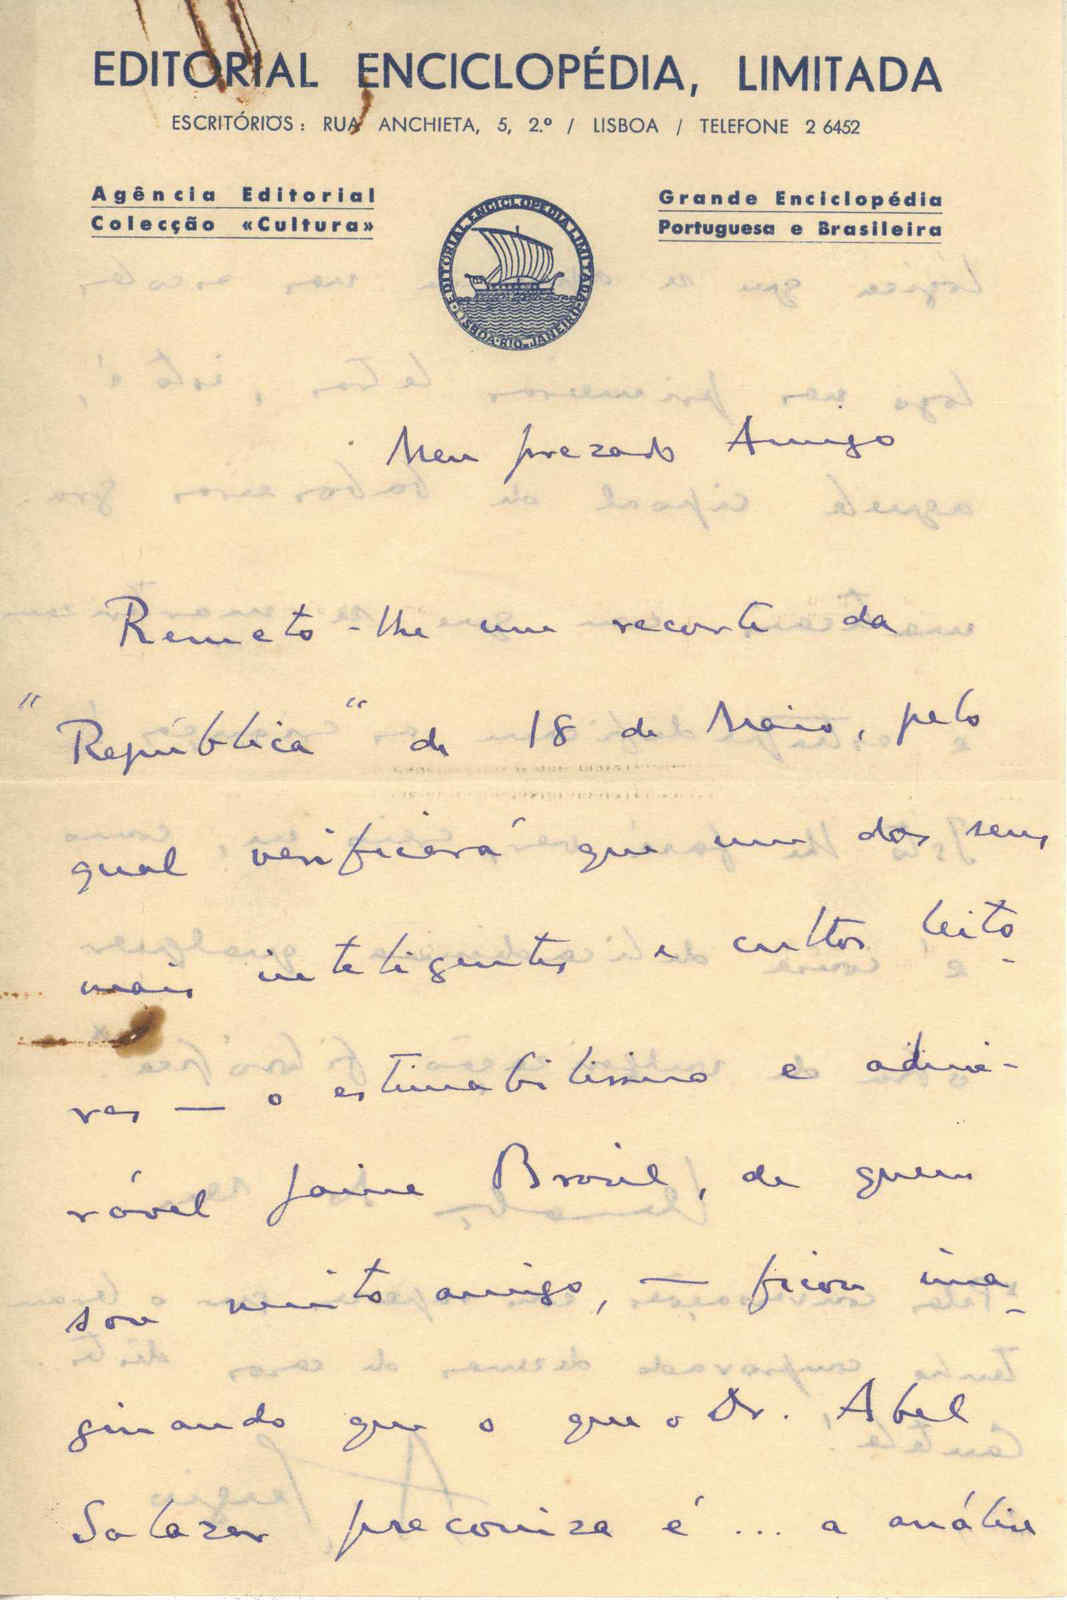 EDITORIAL ENCICLOPÉDIA, LIMITADA
ESCRITÓRIOS: RUA ANCHIETA, 5, 2.º / LISBOA / TELEFONE 2 6452
Agência Editorial
Colecção «Cultura»
Grande Enciclopédia
Portuguesa e Brasileira
EDITORIAL ENCICLOPÉDIA LIMITADA
LISBOA-RIO-JANEIRO
Meu prezado Amigo
Remeto-lhe um recorte da
"República" de 18 de Maio, pelo
qual verificará que um dos seus
mais inteligentes e cultos leito-
res — o estimabilissimo e admi-
rável Jaime Brasil, de quem
sou muito amigo, — ficou ima-
ginando que o que o Dr. Abel
Salazar preconiza é ... a análise